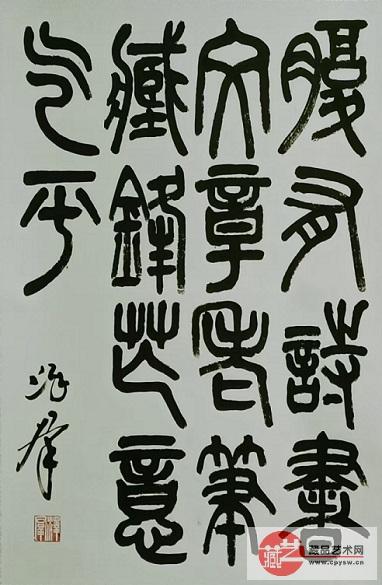 腹有詩書
文章老筆
藏鋒芒意
气平
泽群
藏品艺术网
www.cpysw.cn